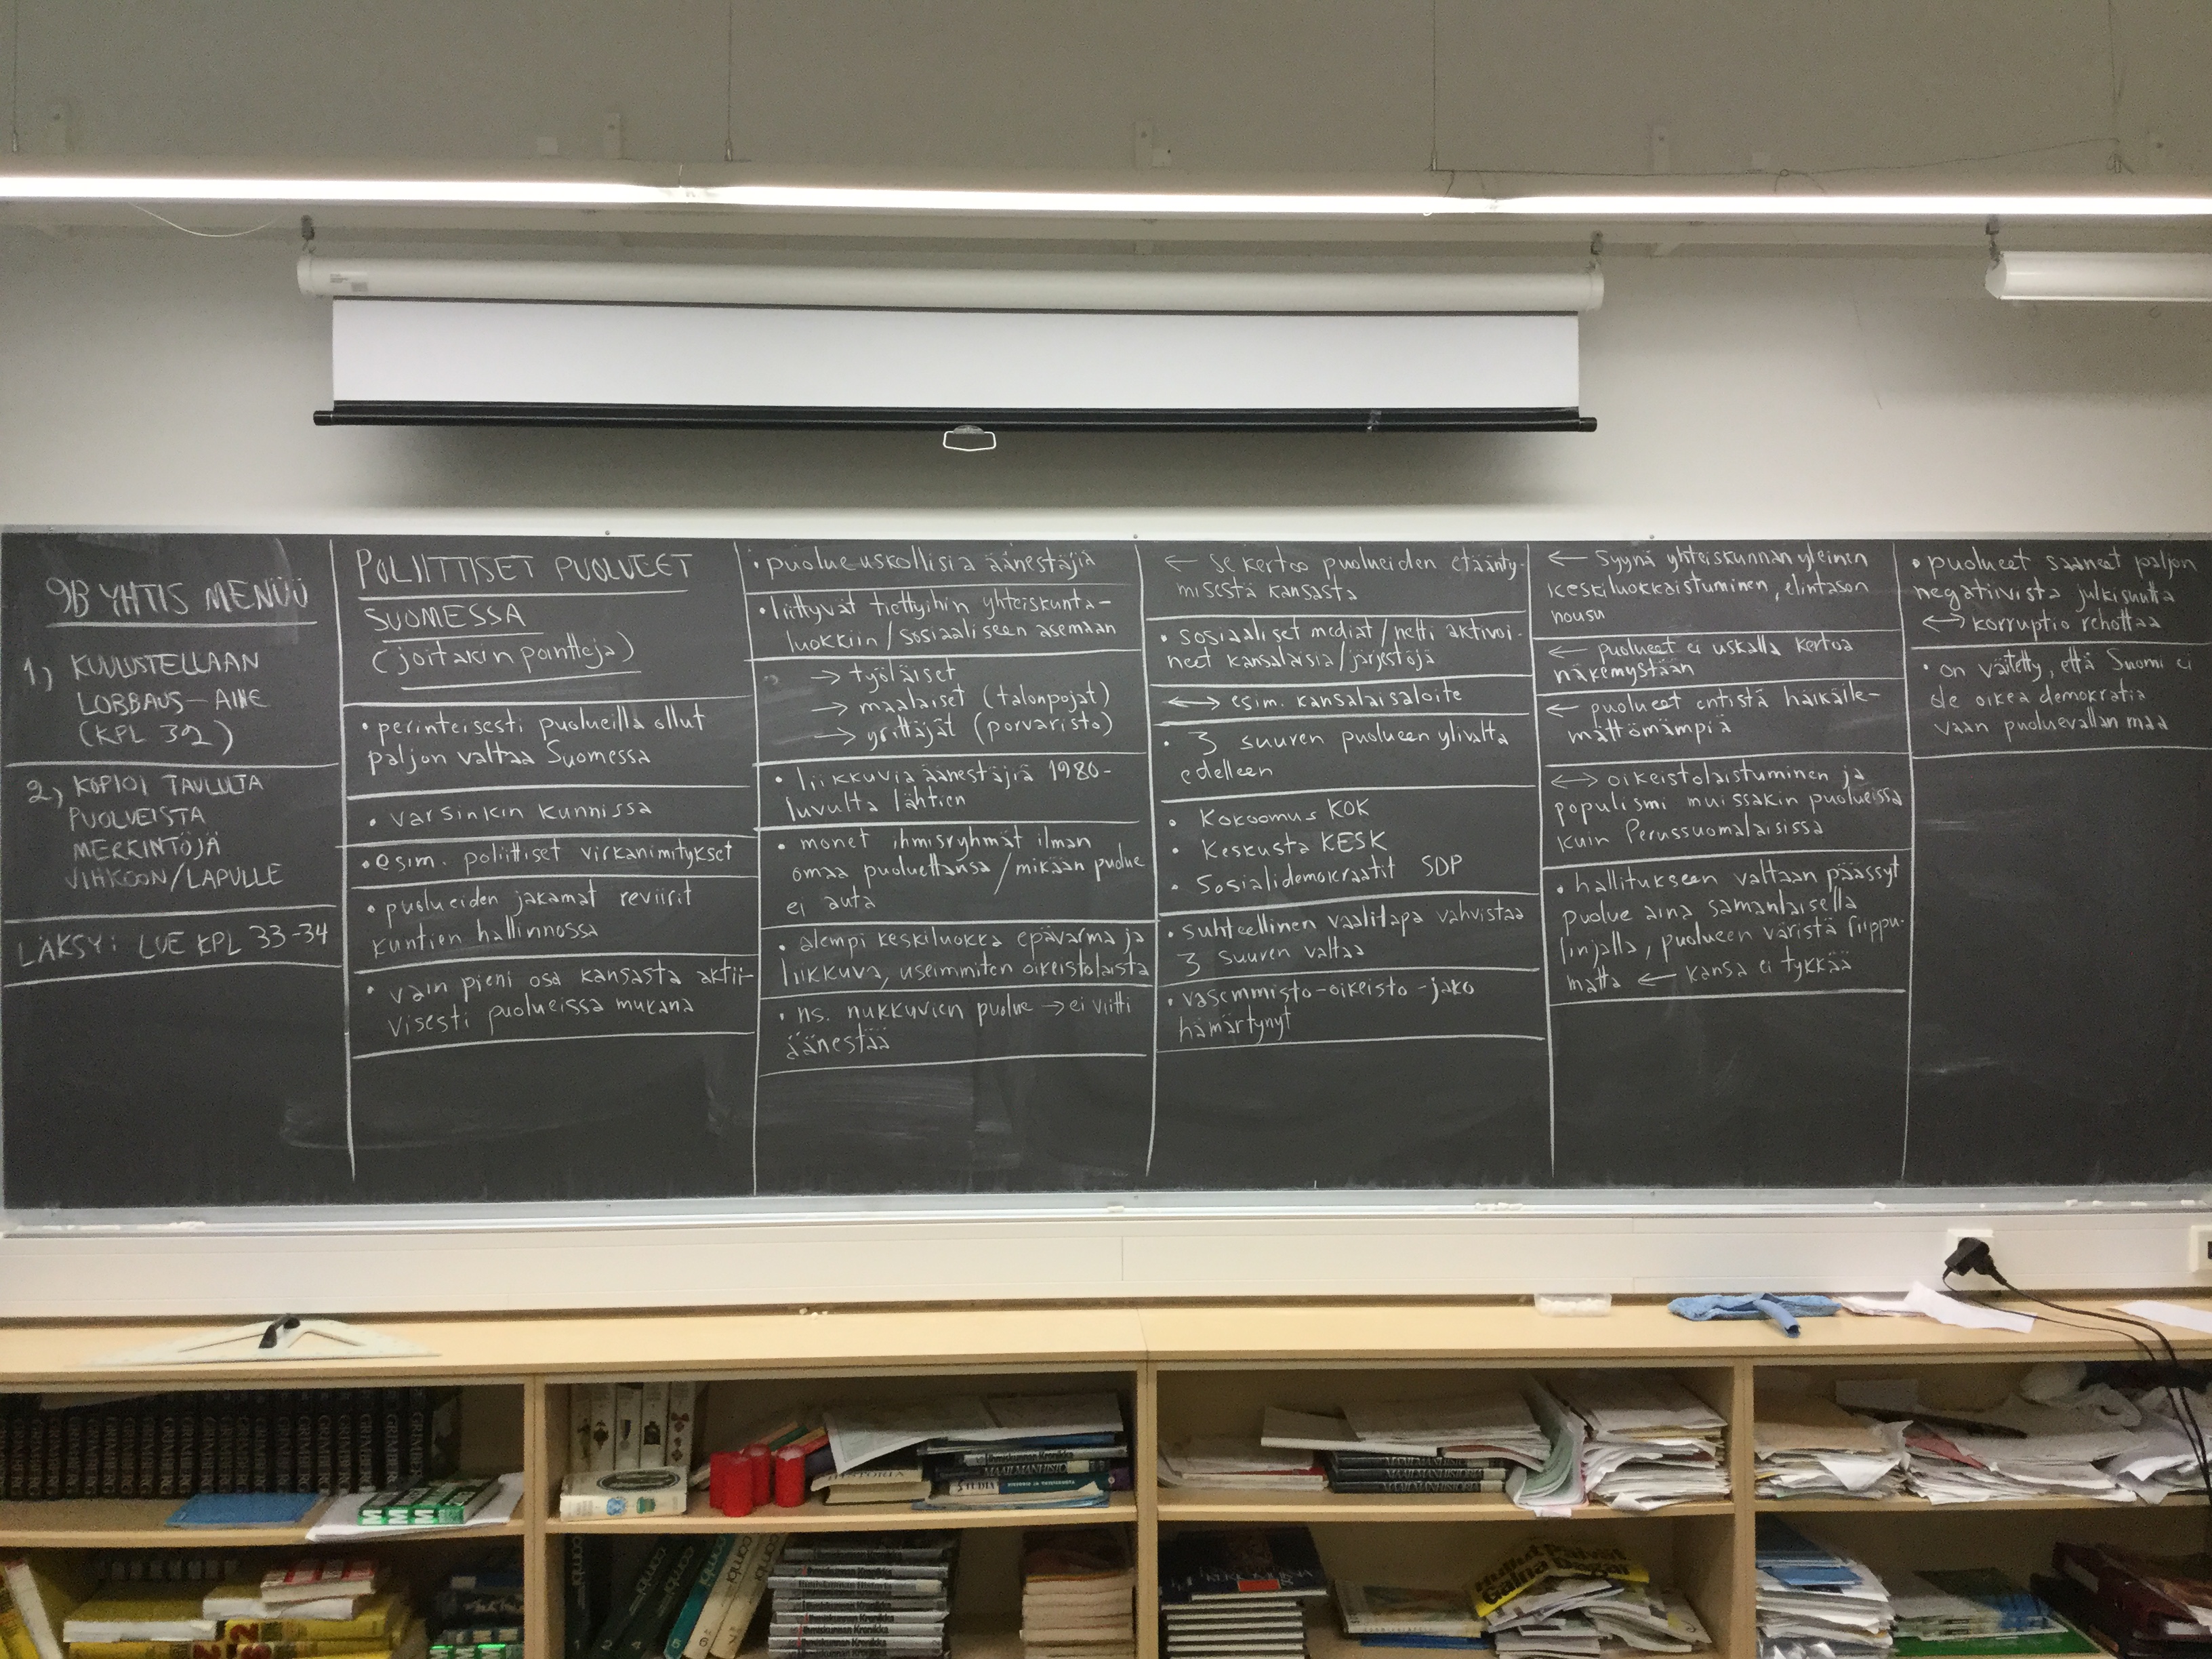 9B YHTIS MENÜÜ
1) KUULUSTELLAAN
LOBBAUS-AIHE
(KPL 32)
2) KOPIOI TAULULTA
PUOLUEISTA
MERKINTÖJÄ
VIHKOON/LAPULLE
LÄKSY: LUE KPL 33-34
POLIITTISET PUOLUEET
SUOMESSA
(joitakin pointteja)
• perinteisesti puolueilla ollut
paljon valtaa Suomessa
• varsinkin kunnissa
• esim. poliittiset virkanimitykset
• puolueiden jakamat reviirit
kuntien hallinnossa
• vain pieni osa kansasta aktii-
visesti puolueissa mukana
• puolueuskollisia äänestäjiä
• liittyvät tiettyihin yhteiskunta-
luokkiin/sosiaaliseen asemaan
→ työläiset
→ maalaiset (talonpojat)
→ yrittäjät (porvaristo)
• liikkuvia äänestäjiä 1980-
luvulta lähtien
• monet ihmisryhmät ilman
omaa puoluettansa/mikään puolue
ei auta
• alempi keskiluokka epävarma ja
liikkuva, useimmiten oikeistolaista
• ns. nukkuvien puolue → ei viitti
äänestää
← se kertoo puolueiden etäänty-
misestä kansasta
• sosiaaliset mediat/netti aktivoi-
neet kansalaisia/järjestöjä
↔ esim. kansalaisaloite
• 3 suuren puolueen ylivalta
edelleen
• Kokoomus KOK
• Keskusta KESK
• Sosialidemokraatit SDP
• suhteellinen vaalitapa vahvistaa
3 suuren valtaa
• vasemmisto-oikeisto-jako
hämärtynyt
← Syynä yhteiskunnan yleinen
keskiluokkaistuminen, elintason
nousu
← puolueet ei uskalla kertoa
näkemystään
← puolueet entistä häikäile-
mättömämpiä
↔ oikeistolaistuminen ja
populismi muissakin puolueissa
kuin Perussuomalaisissa
• hallitukseen valtaan päässyt
puolue aina samanlaisella
linjalla, puolueen väristä riippu-
matta ← kansa ei tykkää
• puolueet saaneet paljon
negatiivista julkisuutta
↔ korruptio rehottaa
• on väitetty, että Suomi ei
ole oikea demokratia
vaan puoluevallan maa
GRIMBERG
HISTORIA
Ihmiskunnan Kronikka
MAAILMANHISTORIA
STUDIA
MAAILMANHISTORIA
MAAILMANHISTORIA
combi
combi
combi
combi
Ihmiskunnan Kronikka
Ihmiskunnan Kronikka
Hullut Päivät
Galna Dagar